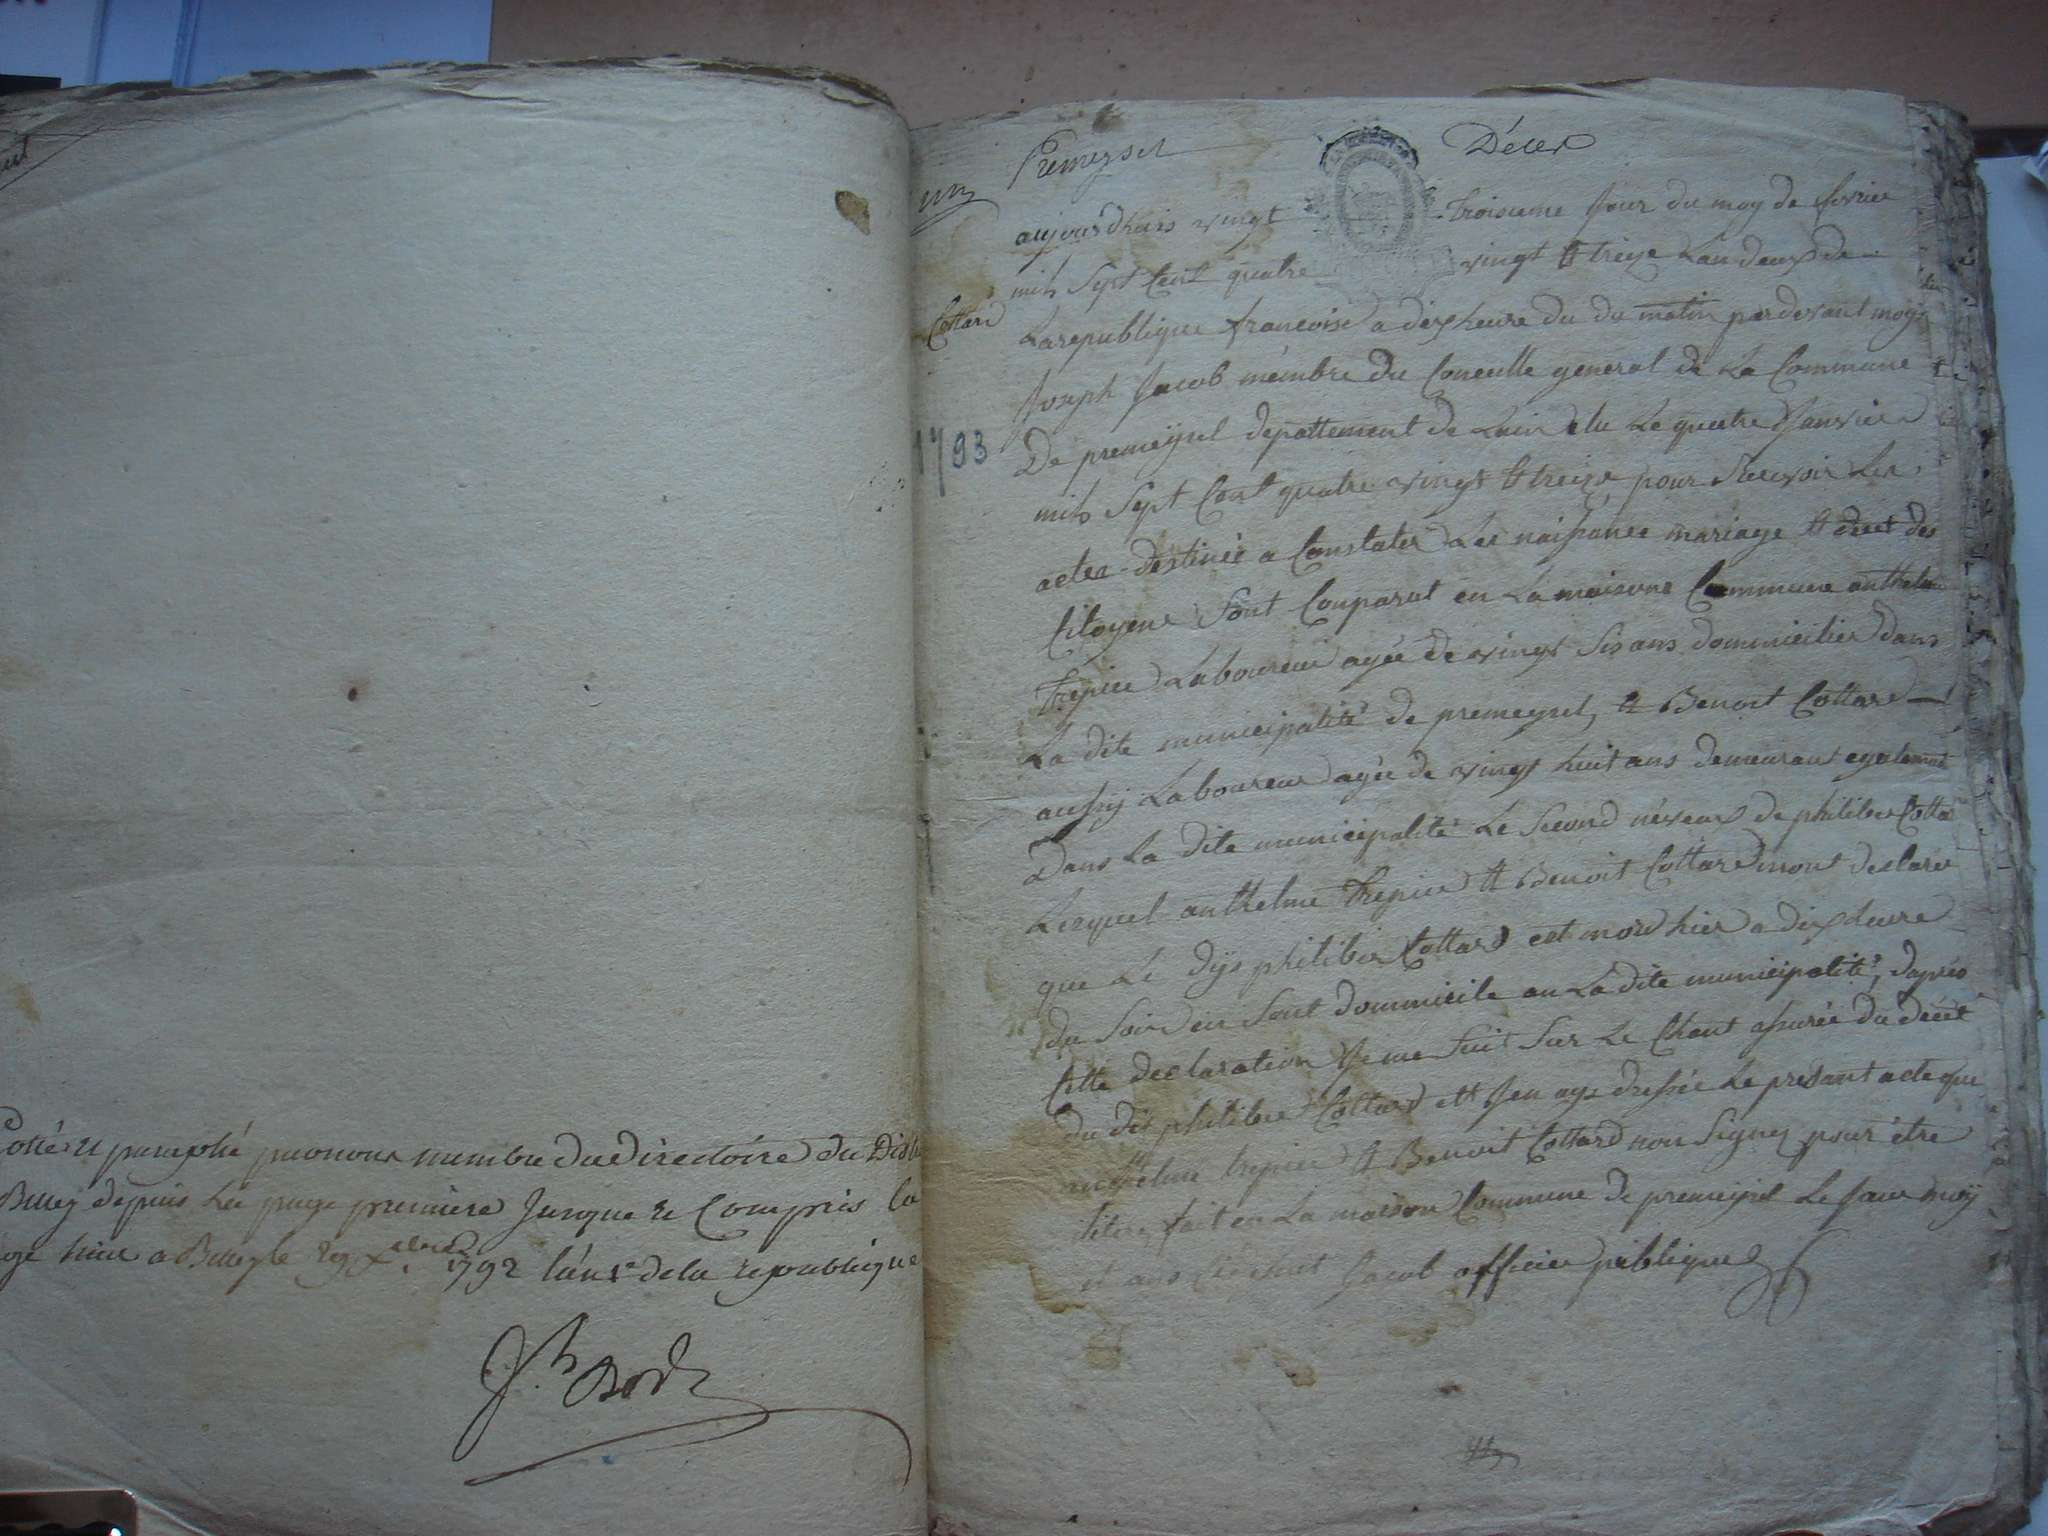 Cotté et paraphé par nous membre du directoire du
Belley depuis la page premiere Jusque et Compris la
a Belley le 29 Xbre 1792 l'an 1er de la republique
Premeysel
Décès
un
aujourdhuis vingt troisieme Jour du moy de fevrier
mil Sept Cent quatre vingt et treize Lan deux de
Cottard
La republique francoise a dix heure du du matin par devant moys
Joseph Jacob membre du Conseille general de La Commune
1793
De premeysel departtement de Lain elu Le quatre Janvier
mil Sept Cent quatre vingt et treize pour Recevoir Les
actes destinée a Constater Les naissance mariage et decet des
Citoyens Sont Comparut en La maisone Commune anthelme
trepier Laboureur agée de vingt Sis ans dommicilier dans
La dite municipalité de premeysel, et Benoit Cottard
aussy Laboureur agée de vingt huit ans demeurant egalement
Dans La dite municipalité Le Second néveux de philiber Cottar
Lesquel anthelme trepier et Benoit Cottard mont declare
que Le dys philiber Cottard est mord hier a dix heure
du Soir en Sont dommicile an La dite municipalité, daprès
Cette declaration Je me Suit Sur Le Chant assurée du decet
du dit philiber Cottard et Jen ays dressée Le présant acte que
anthelme trepier et Benoit Cottard non Signez pour être
fait en La maison Commune de premeysel Le Jour moy
et ans Jacob officier publique